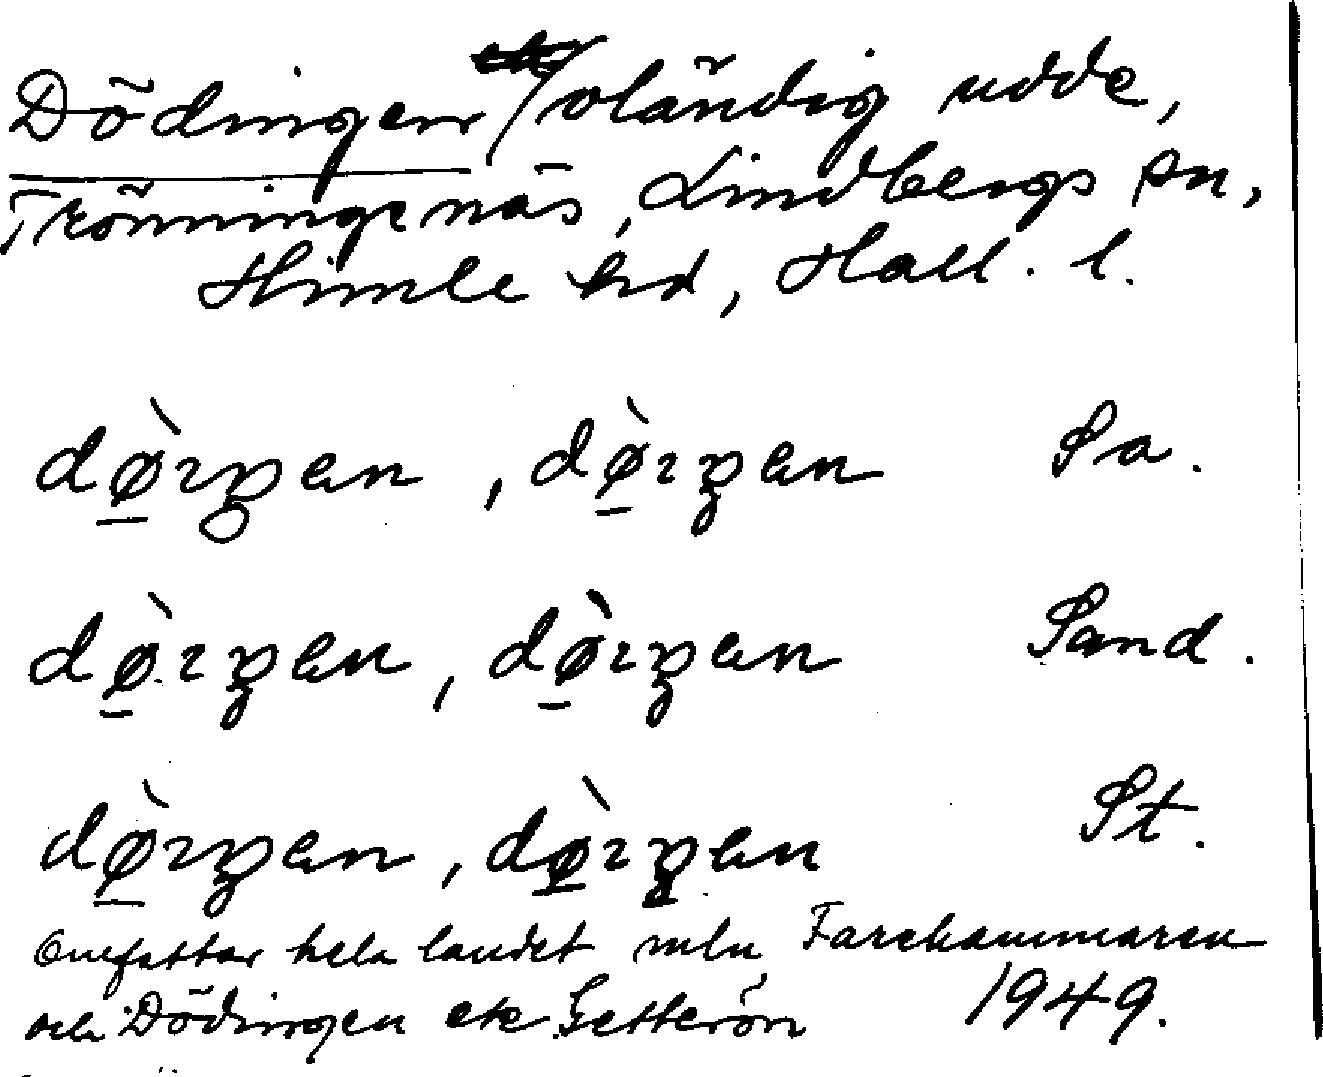 Dödingen / oländig udde,
Trönningenäs, Lindbergs sn,
Himle hd, Hall. l.
dø̀ɿŋen, dø̀ɿŋen Sa.
dø̀ɿŋen, dø̀ɿŋen Sand.
dø̀ɿŋen, dø̀ɿŋen St.
Omfattar hela landet mln Farehammaren
och Dödingen etc Getterön 1949.